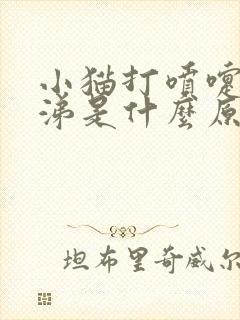 小猫打喷嚏
涕是什麼原
坦布里奇威尔